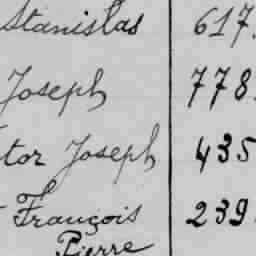 Stanislas 617.
Joseph 778.
tor Joseph 435
François 239.
Pierre